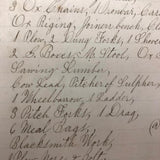 3 Ox Chains, 1 Drawer, Car
Ox Rigging, Joiners bench, Clo
1 Plow, 2 Dung Forks, 1 Shov
2 Boxes, 1 Stool, Ox
Sawing Lumber,
Cow Lead, Pitcher of Sulpher
1 Wheelbarrow, 1 Ladder,
2 Pitch Forks, 1 Drag,
6 Meal Bags,
Blacksmith Work,